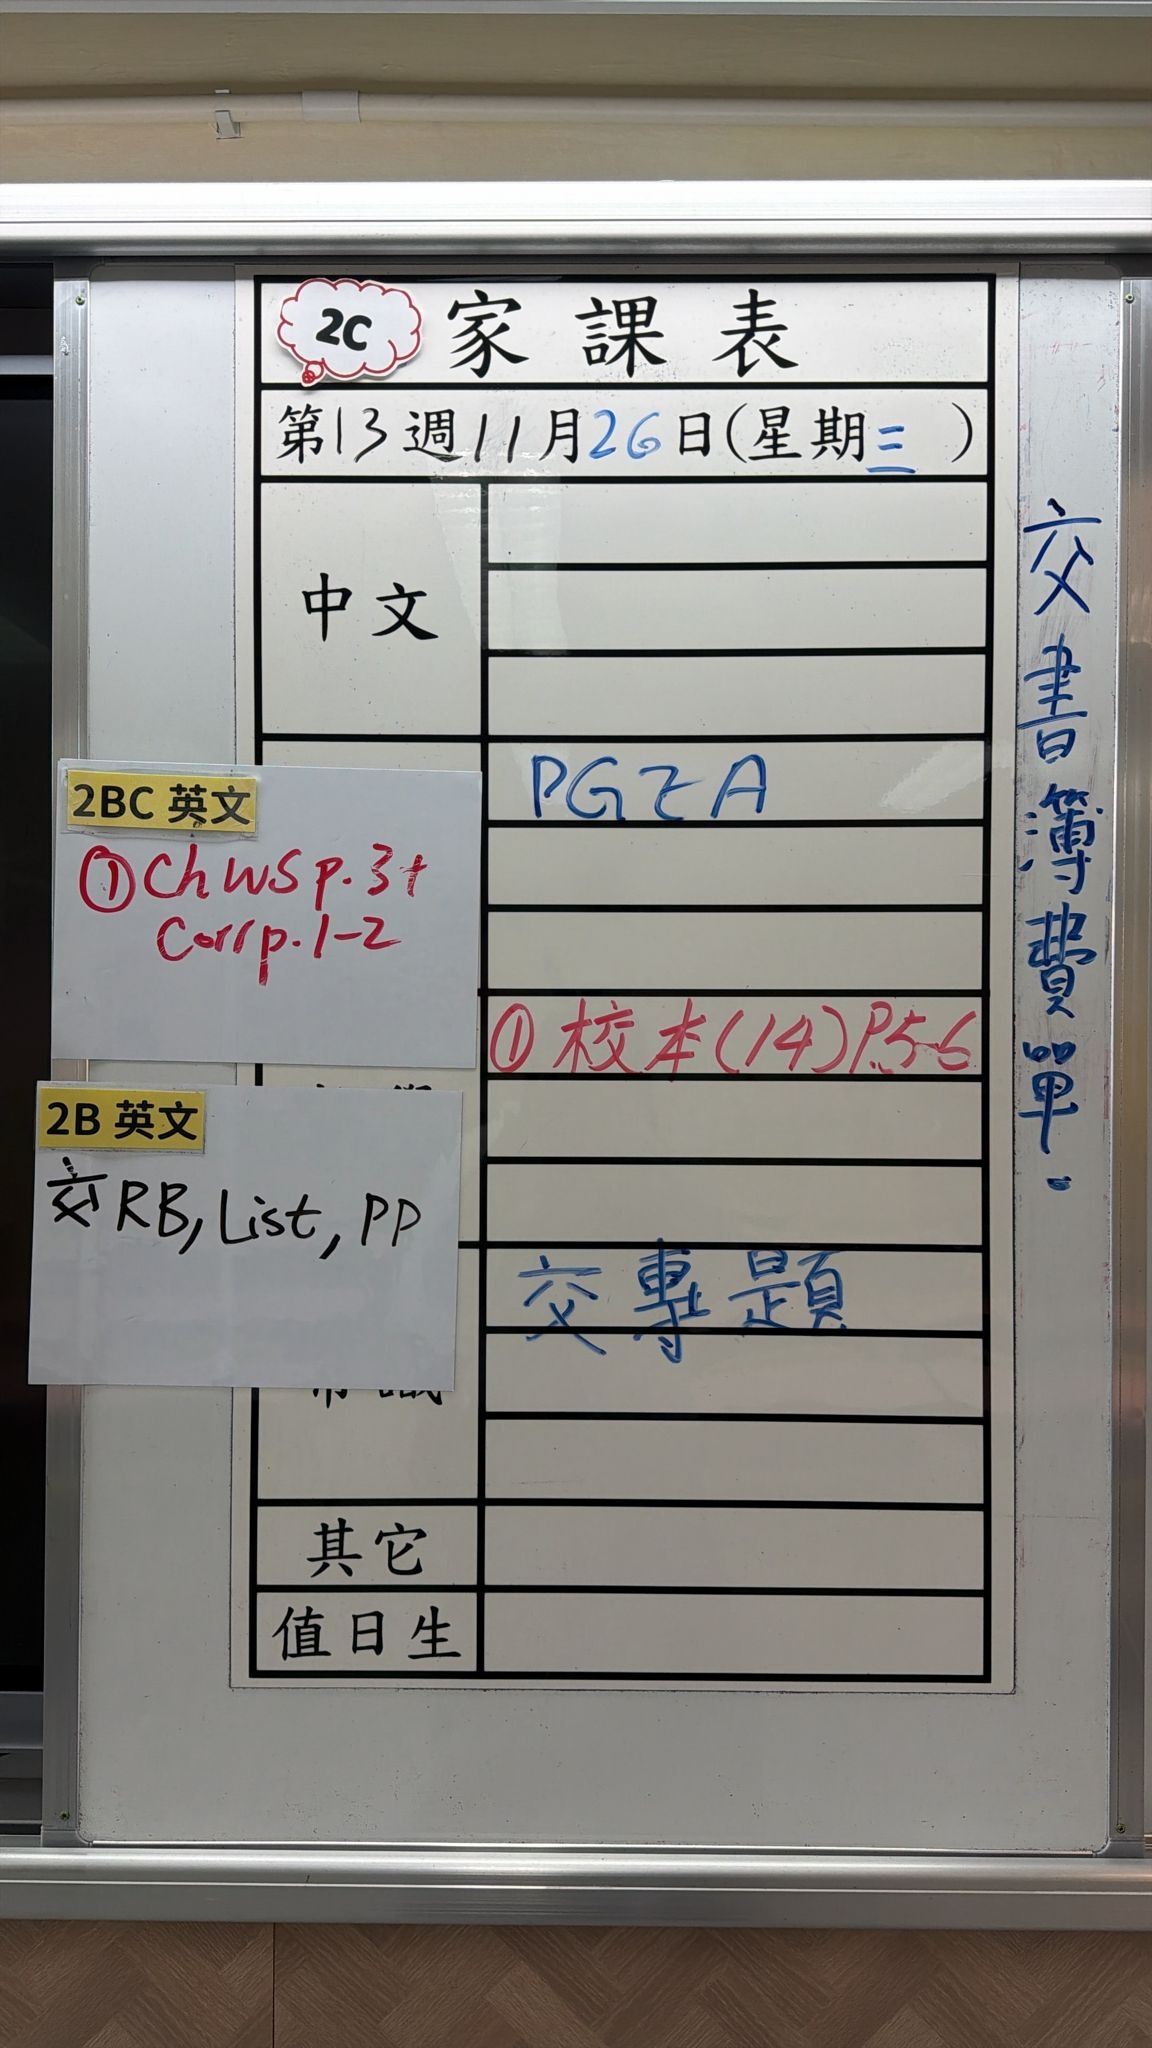 2C 家課表
第13週11月26日(星期三)
中文
PGセA
2BC 英文
①Ch WS p.3+
Corr p.1-2
①校本(14)P.5-6
2B 英文
交 RB, List, PP
交專題
常識
其它
值日生
交書簿費單.